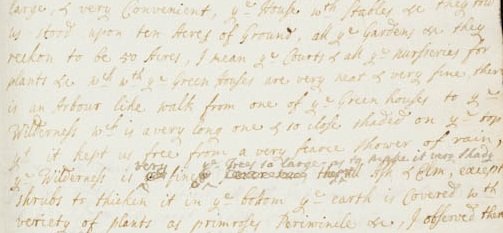 large, & very Convenient, ye House wth Stables &c they told
us stood upon ten Acres of Ground, all ye Gardens &c they
reckon to be 50 Acres, I mean ye Courts & all ye nurseries for
plants &c wch wth ye Green houses are very neat & very fine, there
is an Arbour like walk from one of ye Green houses to ye
Wilderness wch is a very long one & so close shaded on ye top
yt it kept us free from a very fearce shower of rain,
very ye trees so large as to make it very shady
ye Wilderness is fine, they all Ash & Elm, except
shrubs to thicken it in ye bottom ye earth is Covered wth
veriety of plants as primroses Periwincle &c, I observed there